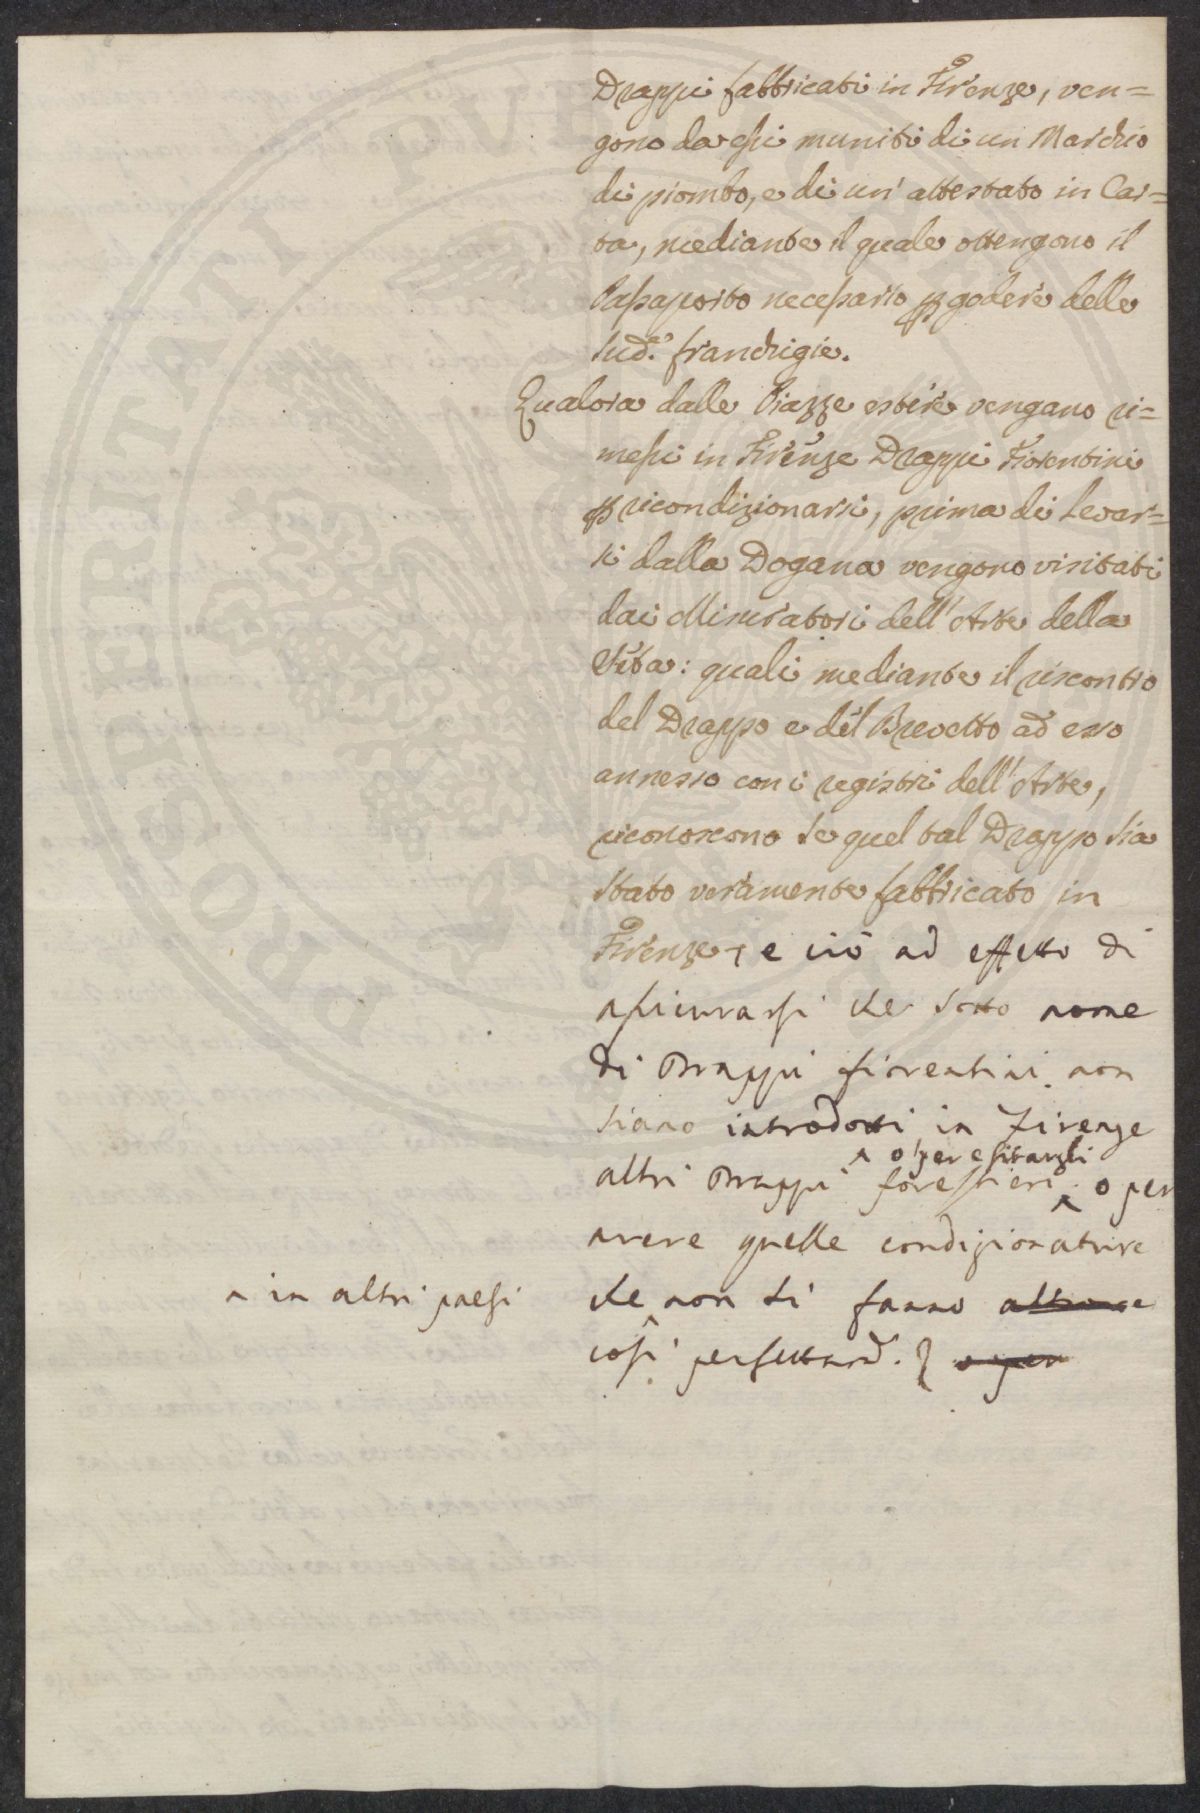 Drappi fabbricati in Firenze, ven=
gono da essi muniti di un Marchio
di piombo, e di un' attestato in Car=
ta, mediante il quale ottengono il
Passaporto necessario p godere delle
sud.e franchigie.
Qualora dalle Piazze estere vengano ri=
messi in Firenze Drappi Fiorentini
p ricondizionarsi, prima di Levar=
si dalla Dogana vengono visitati
dai Misuratori dell'Arte della
Seta: quali mediante il riscontro
del Drappo e del Brevetto ad esso
annesso con i registri dell'Arte,
riconoscono se quel tal Drappo sia
stato veramente fabbricato in
Firenze, e ciò ad effetto di
assicurarsi che sotto nome
di Drappi fiorentini non
siano introdotti in Firenze
^ o per esitargli
altri Drappi forestieri ^ o per
avere quelle condizionature
^ in altri paesi
che non si fanno altrove
così perfettamd. o per
PROSPERITATI PVB